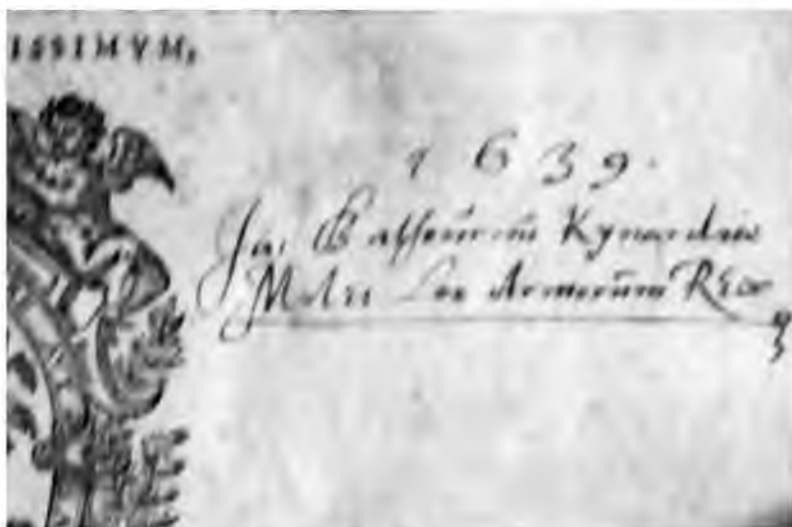 ISSIMVM,
1639.
Ja: Balfourius Kynardiæ
Miles Leo Armorum Rex